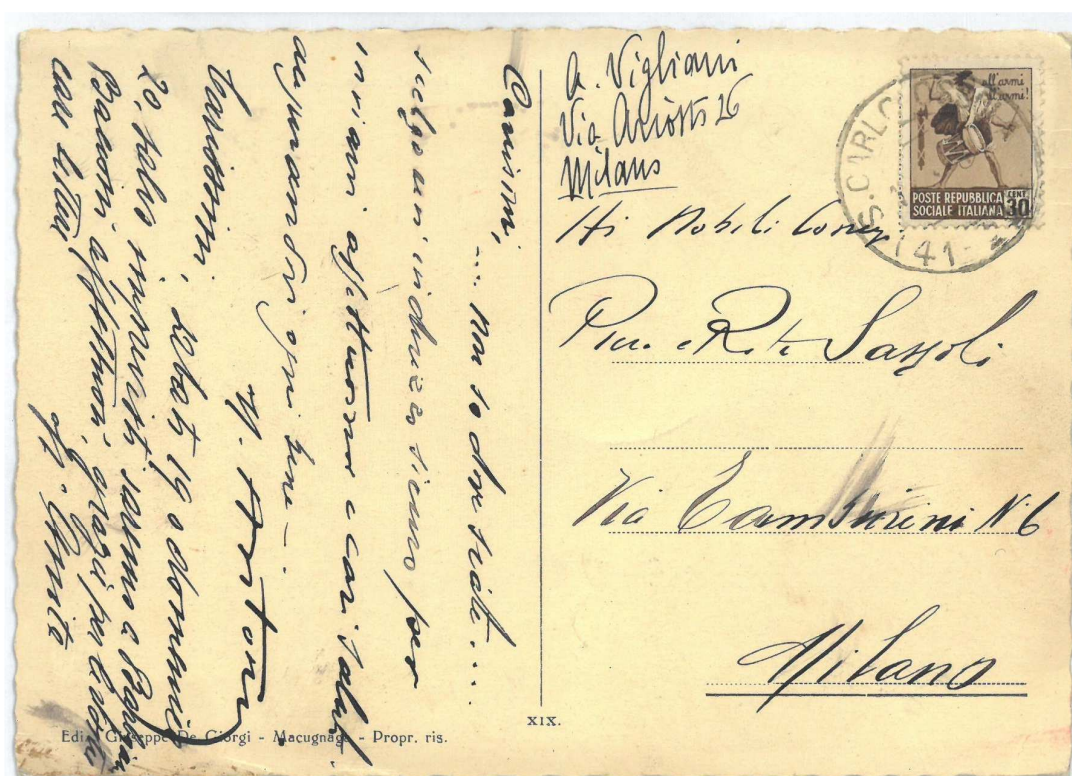 A. Vigliani
Via Ariosto 26
Milano
all'armi
all'armi!
POSTE REPUBBLICA
SOCIALE ITALIANA
CENT.
30
S. CARLO
(41)
Ai Nobili
Pin. e Rita Sassoli
Via Tamburini N. 6
Milano
Carissimi,
.... non so dove siate....
scelgo un indirizzo sicuro per
inviarvi affettuosi e cari saluti
augurandovi ogni bene -.
Carissimi, sabato 19 o domenica
20, salvo imprevisti saremo a
Bacioni affettuosi, grazie per
XIX.
Ediz. Giuseppe De Giorgi - Macugnaga - Propr. ris.